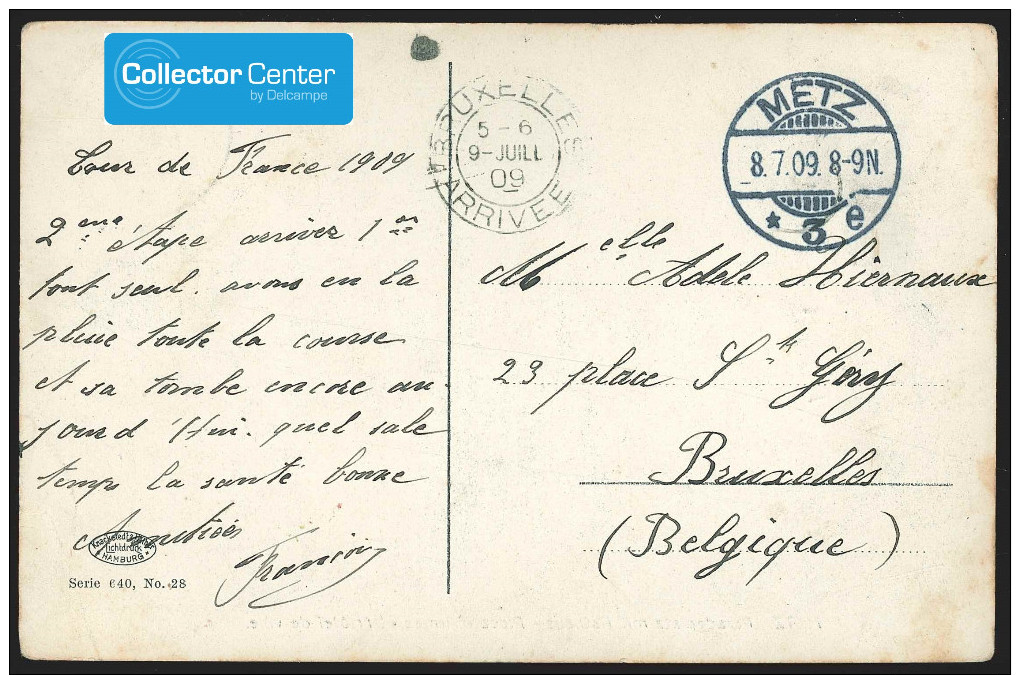 Collector Center
by Delcampe
Tour de France 1909
2eme étape arriver 1er
tout seul. avons eu la
pluie toute la course
et sa tombe encore au-
jourd'hui. quel sale
temps la santé bonne
Amitiés
Knackstedt &
Lichtdruck
HAMBURG
Serie 640, No. 28
BRUXELLES
5-6
9-JUILL
09
ARRIVEE
METZ
8.7.09. 8-9N.
* 3 e
Melle Adele Hiernaux
23 place St Géry
Bruxelles
(Belgique)